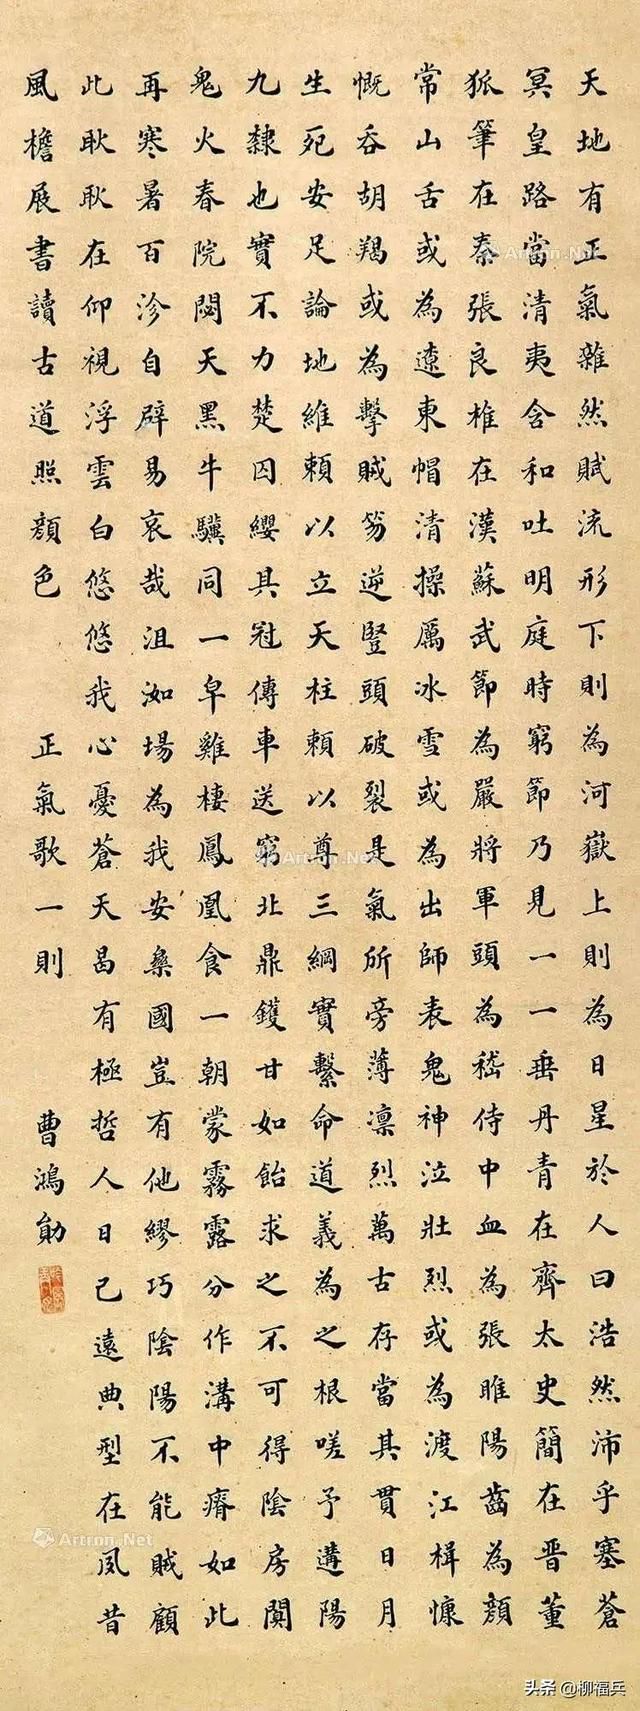 天地有正氣雜然賦流形下則為河嶽上則為日星於人曰浩然沛乎塞蒼
冥皇路當清夷含和吐明庭時窮節乃見一一垂丹青在齊太史簡在晋董
狐筆在秦張良椎在漢蘇武節為嚴將軍頭為嵇侍中血為張睢陽齒為顏
常山舌或為遼東帽清操厲冰雪或為出師表鬼神泣壯烈或為渡江楫慷
慨吞胡羯或為擊賊笏逆豎頭破裂是氣所旁薄凜烈萬古存當其貫日月
生死安足論地維賴以立天柱賴以尊三綱實繫命道義為之根嗟予遘陽
九隸也實不力楚囚纓其冠傳車送窮北鼎鑊甘如飴求之不可得陰房闃
鬼火春院閟天黑牛驥同一皁雞棲鳳凰食一朝蒙霧露分作溝中瘠如此
再寒暑百沴自辟易哀哉沮洳場為我安樂國豈有他繆巧陰陽不能賊顧
此耿耿在仰視浮雲白悠悠我心憂蒼天曷有極哲人日已遠典型在夙昔
風檐展書讀古道照顏色 正氣歌一則 曹鴻勛
Artron.Net
Artron.Net
Artron.Net
头条 @柳福兵